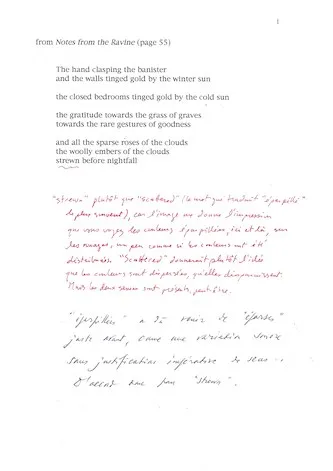 1
from Notes from the Ravine (page 55)
The hand clasping the banister
and the walls tinged gold by the winter sun
the closed bedrooms tinged gold by the cold sun
the gratitude towards the grass of graves
towards the rare gestures of goodness
and all the sparse roses of the clouds
the woolly embers of the clouds
strewn before nightfall
"strewn" plutôt que "scattered" (le mot que traduit "éparpillé"
le plus souvent), car l'image me donne l'impression
que vous voyez les couleurs éparpillées, ici et là, sur
les nuages, un peu comme si les couleurs ont été
distribuées. "Scattered" donnerait plutôt l'idée
que les couleurs sont dispersées, qu'elles disparaissent.
Mais les deux sens sont présents, peut-être.
"éparpillées" a dû venir de "éparses"
juste avant, comme une variation sonore
sans justification impérative de sens..
D'accord donc pour "strewn".